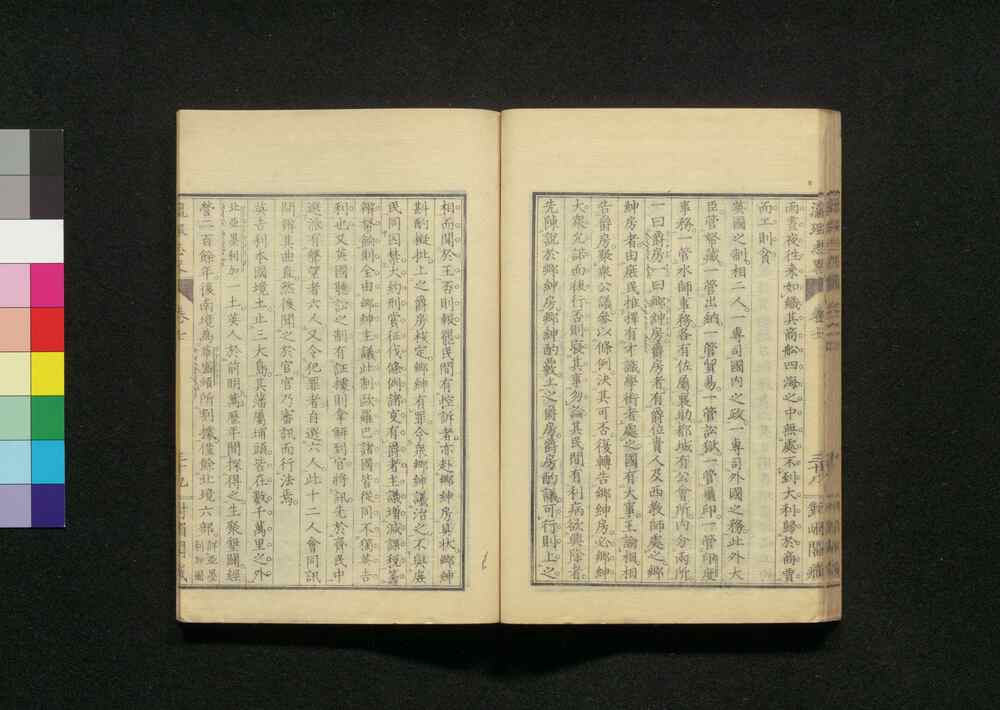 而晝夜往來如織其商船四海之中無處不到大利歸於商賈
而工則貧
英國之制相二人一專司國内之政一專司外國之務此外大
臣一管帑藏一管出納一管貿易一管訟獄一管璽印一管印度
事務一管水師事務各有佐屬襄助都城有公會所内分兩所
一曰爵房一曰鄉紳房爵房者有爵位貴人及西教師處之鄉
紳房者由庶民推擇有才識學術者處之國有大事王諭相相
告爵房聚衆公議參以條例決其可否復轉告鄉紳房必鄉紳
大衆允諾而後行否則寢其事勿論其民間有利病欲興除者
先陳說於鄉紳房鄉紳酌覈上之爵房爵房酌議可行則上之
相而聞於王否則報罷民間有控訴者亦赴鄉紳房具狀鄉紳
斟酌擬批上之爵房核定鄉紳有罪令衆鄉紳議治之不與庶
民同囚禁大約刑賞征伐條例諸事有爵者主議增減課稅籌
辦帑餉則全由鄉紳主議此制歐羅巴諸國皆從同不獨英吉
利也又英國聽訟之制有證據則拿解到官將訊先於齊民中
選派有聲望者六人又令犯罪者自選六人此十二人會同訊
問辨其曲直然後聞之於官官乃審訊而行法焉
英吉利本國境土止三大島其藩屬埔頭皆在數千萬里之外
北亞墨利加一土英人於前明萬歷年間探得之生聚墾闢經
營二百餘年後南境爲華盛頓所割據僅餘北境六部詳亞墨利加圖
卷七 三十九